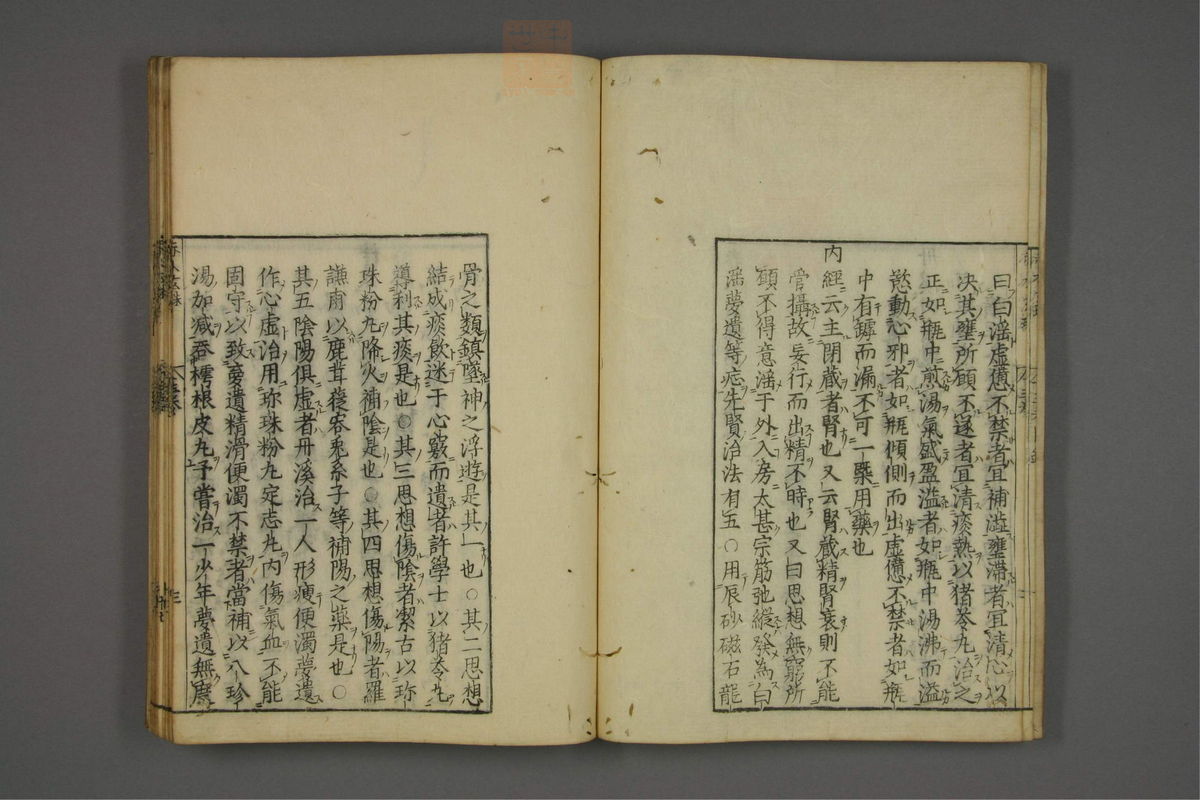 曰白滛虚憊不禁者冝補澁壅滯者冝清心以
决其壅所願不遂者冝清痰熱以猪苓丸治之
正如甁中煎湯氣盛盈溢者如甁中湯沸而溢
慾動心邪者如甁傾側而出虚憊不禁者如甁
中有罅而漏不可一槩用藥也
內經云主閉蔵者腎也又云腎蔵精腎衰則不能
管攝故妄行而出精不時也又曰思想無窮所
願不得意滛于外入房太甚宗筋弛縱發為白
滛夢遺等症先賢治法有五○用辰砂磁石龍
骨之類鎮墜神之浮遊是其一也○其二思想
結成痰飲迷于心竅而遺者許學士以猪苓丸
導利其痰是也○其三思想傷陰者潔古以珎
珠粉丸降火補陰是也○其四思想傷陽者羅
謙甫以鹿茸蓯蓉兎糸子等補陽之藥是也○
其五陰陽俱虚者丹溪治一人形瘦便濁夢遺
作心虚治用珎珠粉丸定志丸內傷氣血不能
固守以致夢遺精滑便濁不禁者當補以八珍
湯加减吞樗根皮丸予嘗治一少年夢遺無度